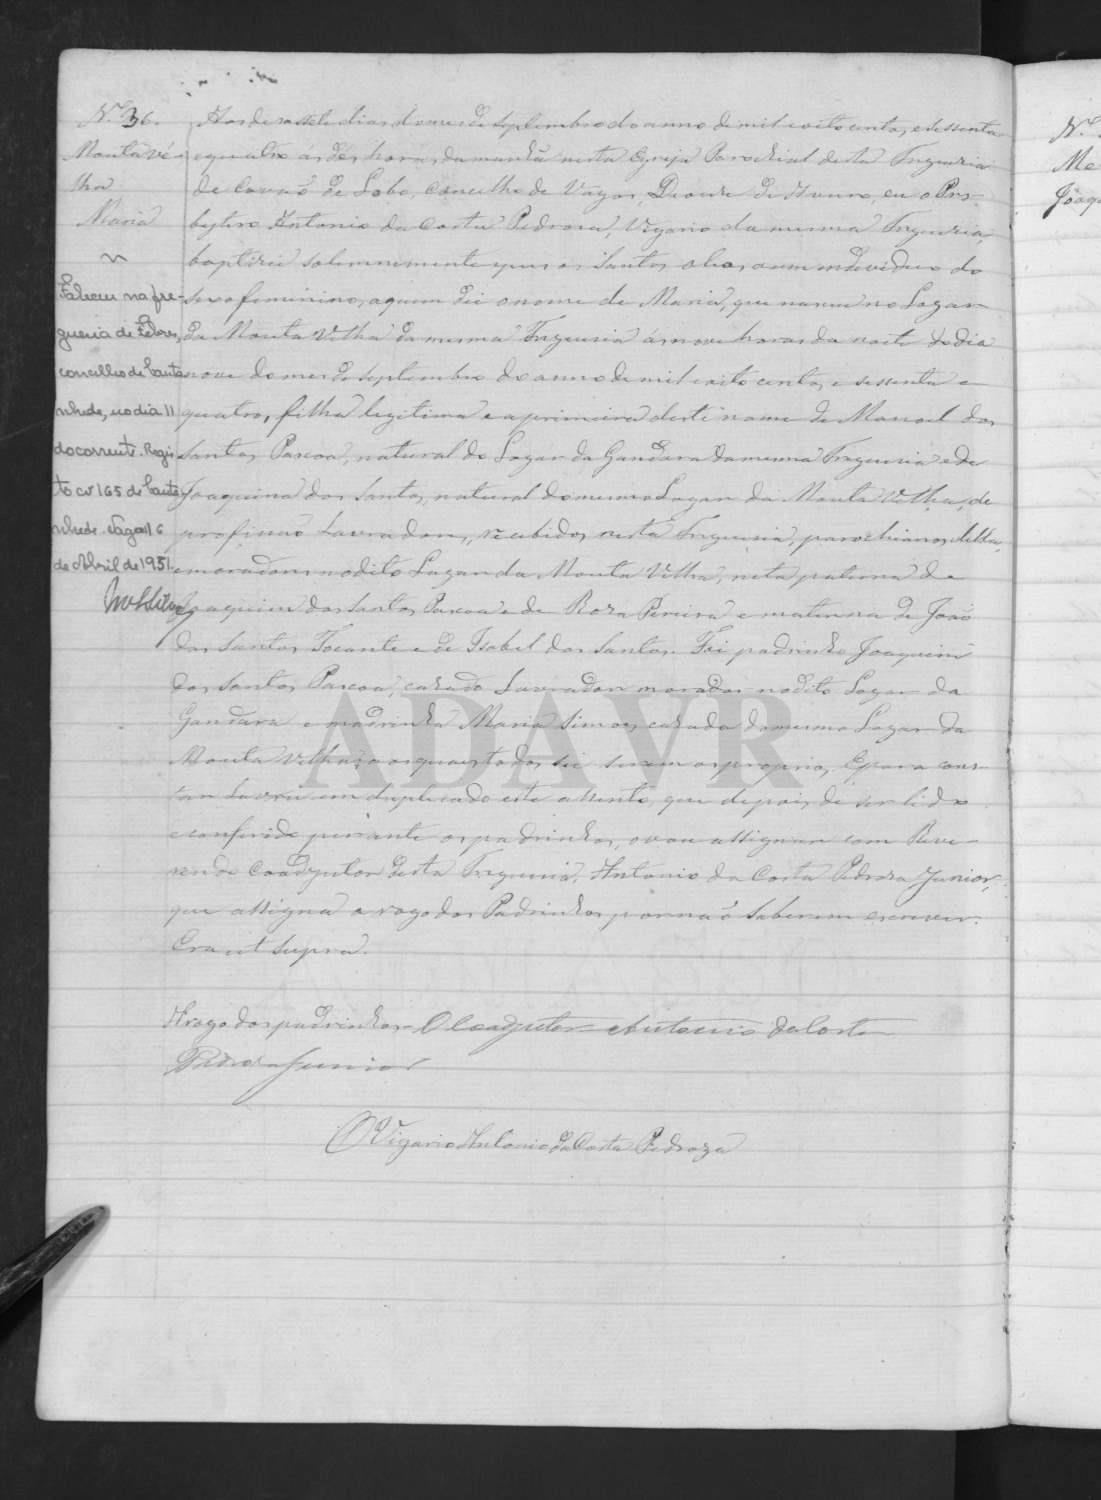 N.º 36.
Monta vé-
lha
Maria
Faleceu na fre-
guesia de Febres,
concelho de Canta-
nhede, no dia 11
do corrente. Regis-
to nº 165 de Canta-
nhede. Vagos 16
de Abril de 1951.
Aos desassete dias do mes de Septembro do anno de mil e oito centos e sessenta
e quatro ás dés horas da manhã nesta Egreja Parochial desta Freguesia
de Covaõ de Lobo, Concelho de Vagos, Diocese de Aveiro, eu o Pres-
bytero Antonio da Costa Pedroza, Vigario da mesma Freguesia,
baptizei solemnemente e puz os Santos oleos a um individuo do
sexo feminino, a quem dei o nome de Maria, que nasceu no Logar
da Monta Velha da mesma Freguesia ás nove horas da noite do dia
nove do mes de Septembro do anno de mil e oito centos e sessenta e
quatro, filha legitima e a primeira deste nome de Manoel dos
Santos Pascoa, natural do Logar da Gandara da mesma Freguesia e de
Joaquina dos Santos, natural do mesmo Logar da Monta Velha, de
profissaõ Lavradores, recebidos nesta Freguesia, parochianos della,
e moradores no dito Logar da Monta Velha, neta paterna de
Joaquim dos Santos Pascoa e de Roza Pereira e materna de Joaõ
dos Santos Tocante e de Isabel dos Santos. Foi padrinho Joaquim
dos Santos Pascoa, casado Lavrador morador no dito Logar da
Gandara e madrinha Maria Simoes, casada do mesmo Logar da
Monta Velha, os quaes todos sei serem os proprios. E para cons-
tar Lavrei em duplicado este assento, que depois de ser lido
e conferido perante os padrinhos, o vou assignar com Reve-
rendo Coadjutor desta Freguesia, Antonio da Costa Pedroza Junior,
que assigna a rogo dos Padrinhos por naõ saberem escrever.
Era ut supra.
A rogo dos padrinhos O Coadjutor Antonio da Costa
Pedroza Junior
O Vigario Antonio da Costa Pedroza
N.
Me
Joaq
ADAVR